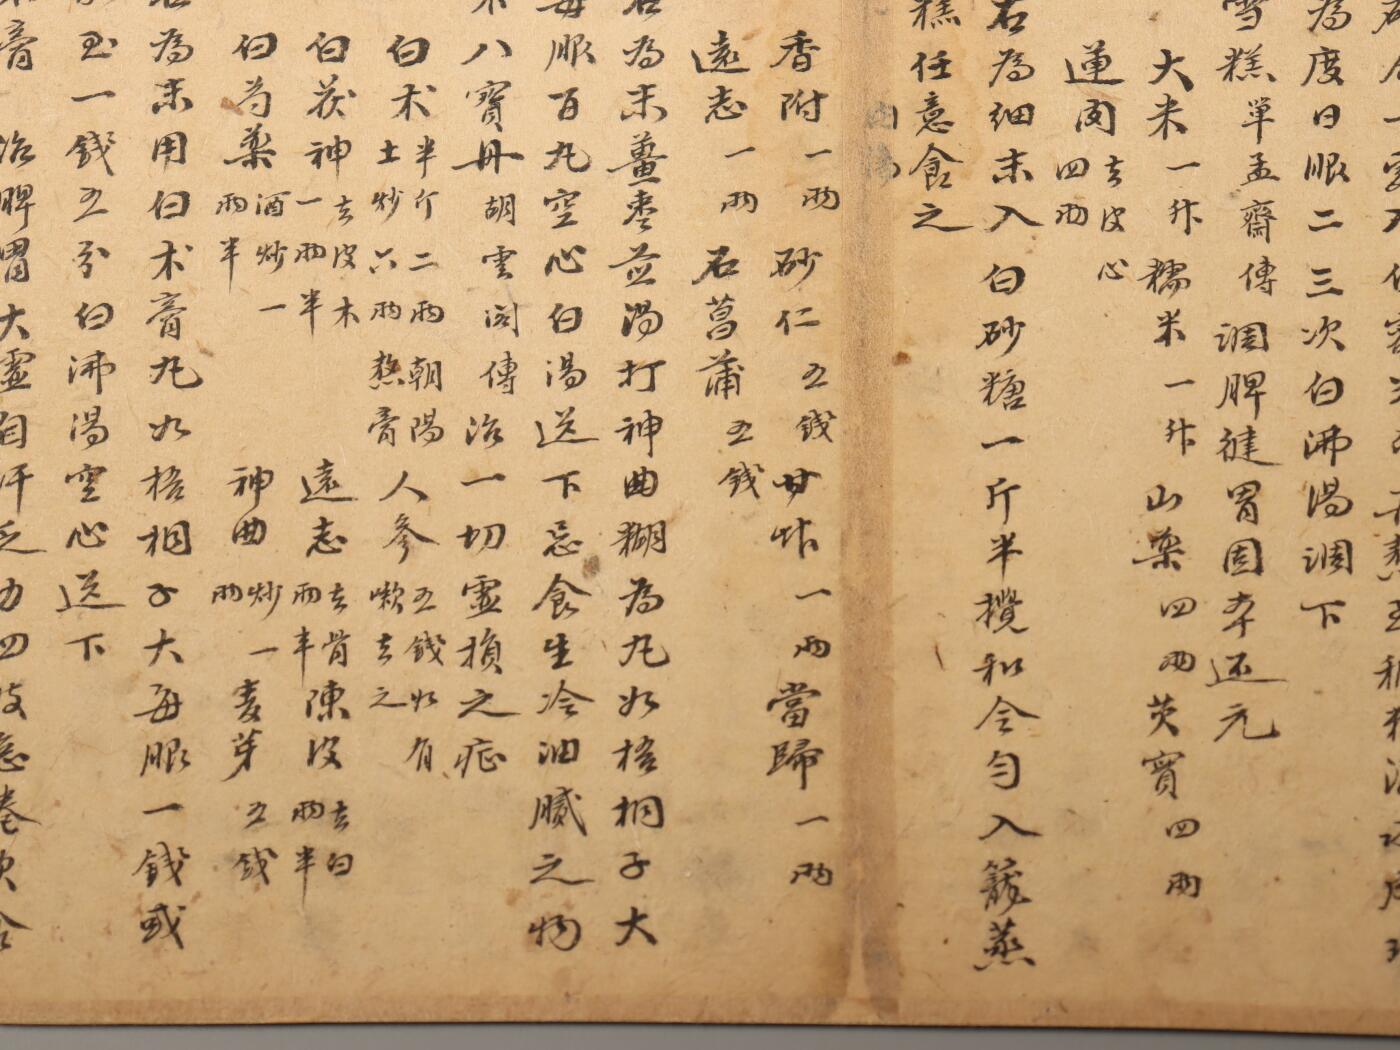 為度日服二三次白沸湯調下
雪糕單孟齋傳調脾健胃固本还元
大米一升糯米一升山藥四两芡實四两
蓮肉去皮心四两
右為細末入白砂糖一斤半攪和令匀入籠蒸
糕任意食之
香附一两砂仁五錢甘草一两當歸一两
遠志一两石菖蒲五錢
右為末薑棗煎湯打神曲糊為丸如梧桐子大
每服百丸空心白湯送下忌食生冷油膩之物
八寶丹胡雲閣傳治一切虛損之症
白术半斤二两土炒六两朝陽熬膏人參五錢如有嗽去之
白茯神去皮木一两半遠志去骨两半陳皮去白两半
白芍藥酒炒一两半神曲炒一两麦芽五錢
為末用白术膏丸如梧桐子大每服一錢或
一錢五分白沸湯空心送下
膏治脾胃大虛自汗乏力四肢怠倦飲食